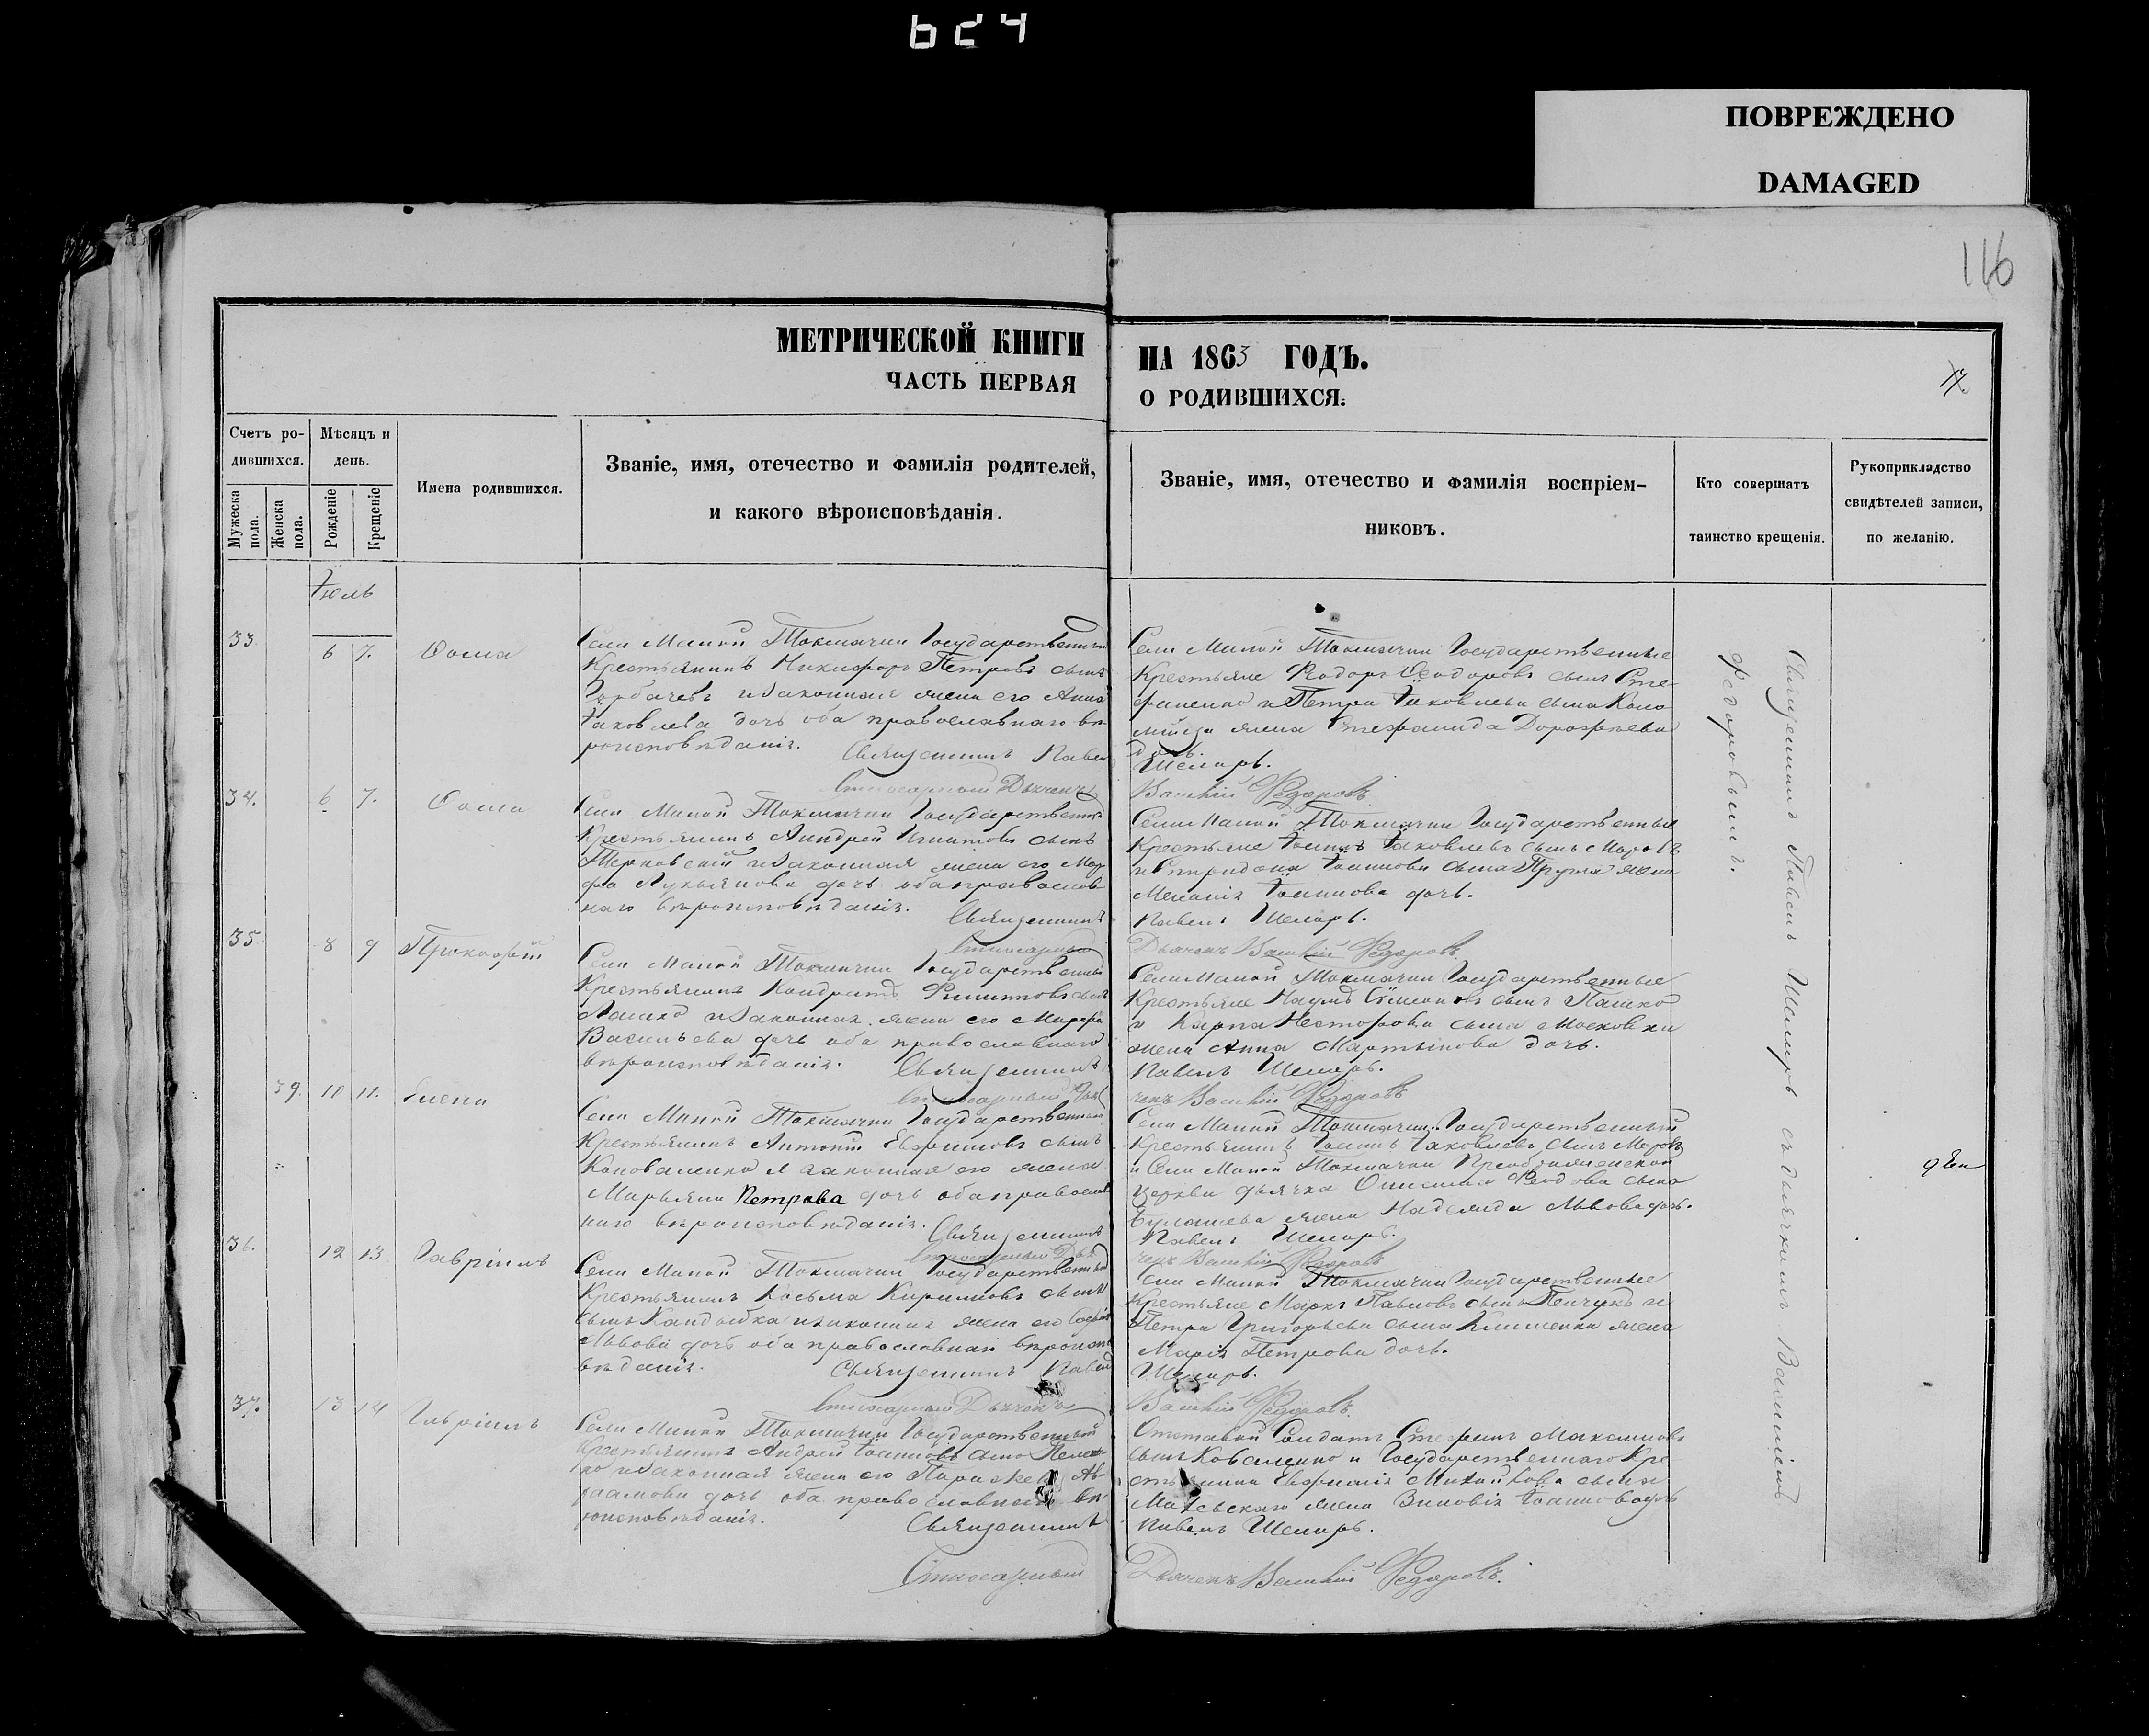 624
ПОВРЕЖДЕНО
DAMAGED
116
МЕТРИЧЕСКОЙ КНИГИ НА 1863 ГОДЪ.
ЧАСТЬ ПЕРВАЯ О РОДИВШИХСЯ.
17
Счетъ родившихся.
Мужеска пола.
Женска пола.
Мѣсяцъ и день.
Рожденіе
Крещеніе
Имена родившихся.
Званіе, имя, отечество и фамилія родителей,
и какого вѣроисповѣданія.
Званіе, имя, отечество и фамилія воспріем-
никовъ.
Кто совершатъ
таинство крещенія.
Рукоприкладство
свидѣтелей записи,
по желанію.
Іюль
33. 6 7. Ѳома
Села Малой Токмачки Государственный
Крестьянинъ Никифоръ Петровъ сынъ
Горбачевъ и законная жена его Анна
Яковлева дочь оба православнаго вѣ-
роисповѣданія.
Священникъ Павелъ
Села Малой Токмачки Государственные
Крестьяне Ѳедоръ Ѳеодоровъ сынъ Сте-
фаненко и Петра Яковлева сына Коло
мійца жена Стефанида Дорофѣева
дочь.
Шемаръ.
Дьячекъ
Василій Ѳедоровъ
34. 6 7. Ѳома
Села Малой Токмачки Государственный
Крестьянинъ Андрей Игнатовъ сынъ
Терновскій и законная жена его Мар
фа Лукьянова дочь оба православ
наго вѣроисповѣданія.
Священникъ
Села Малой Токмачки Государственные
Крестьяне Іоаннъ Яковлевъ сынъ Морозъ
и Спиридона Іоаннова сына Пругла жена
Меланія Іоаннова дочь.
Павелъ Шемаръ.
Дьячекъ Василій Ѳедоровъ
35. 8 9 Прокофій
Села Малой Токмачки Государственный
Крестьянинъ Кондратъ Филипповъ сынъ
Лашко и законная жена его Марфа
Васильева дочь оба православнаго
вѣроисповѣданія.
Священникъ
Села Малой Токмачки Государственные
Крестьяне Наумъ Сѵмеоновъ сынъ Пашко
и Карпа Несторова сына Московки
жена Анна Мартынова дочь.
Павелъ Шемаръ.
Василій Ѳедоровъ
39. 10 11. Елена
Села Малой Токмачки Государственный
Крестьянинъ Антоній Евфимовъ сынъ
Коноваленко и законная его жена
Марьяна Петрова дочь оба православ
наго вѣроисповѣданія.
Священникъ
Села Малой Токмачки Государственный
Крестьянинъ Іоаннъ Яковлевъ сынъ Морозъ
и Села Малой Токмачки Преображенской
Церкви дьячка сына
Булашева жена Надежда Львова дочь.
Павелъ Шемаръ.
Василій Ѳедоровъ
36. 12 13 Гавріилъ
Села Малой Токмачки Государственный
Крестьянинъ Косьма Кириловъ сынъ
сынъ Кандыбка и законная жена его Софія
Львова дочь оба православнаго вѣроиспо
вѣданія.
Священникъ Павелъ
Села Малой Токмачки Государственные
Крестьяне Маркъ Павловъ сынъ Пенчукъ и
Петра Григорьева сына Клименки жена
Марія Петрова дочь.
Шемаръ.
Дьячекъ
Василій Ѳедоровъ.
37. 13 14 Гавріилъ
Села Малой Токмачки Государственный
Крестьянинъ Андрей Іоанновъ сынъ
и законная жена его Параскева Ав-
раамова дочь оба православнаго вѣ
роисповѣданія.
Священникъ
Отставной Солдатъ Стефанъ Максимовъ
сынъ Коваленко и Государственнаго Кре
стьянина Евфимія Михайлова сына
жена Зиновія Іоаннова дочь
Павелъ Шемаръ.
Дьячекъ Василій Ѳедоровъ.
Священникъ Павелъ Шемаръ съ дьячкомъ Василіемъ
Ѳедоровымъ.